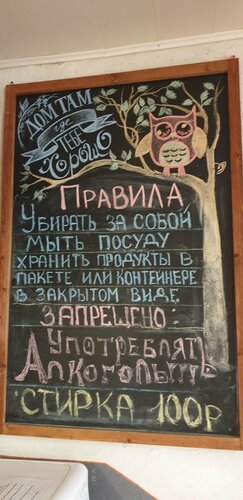 ДОМ ТАМ
где
ТЕБЕ
Хорошо
ПРАВИЛА
УБИРАТЬ ЗА СОБОЙ
МЫТЬ ПОСУДУ
ХРАНИТЬ ПРОДУКТЫ В
ПАКЕТЕ ИЛИ КОНТЕЙНЕРЕ
В ЗАКРЫТОМ ВИДЕ
ЗАПРЕЩЕНО:
УПОТРЕБЛЯТЬ
АЛКОГОЛЬ!!!
СТИРКА 100Р